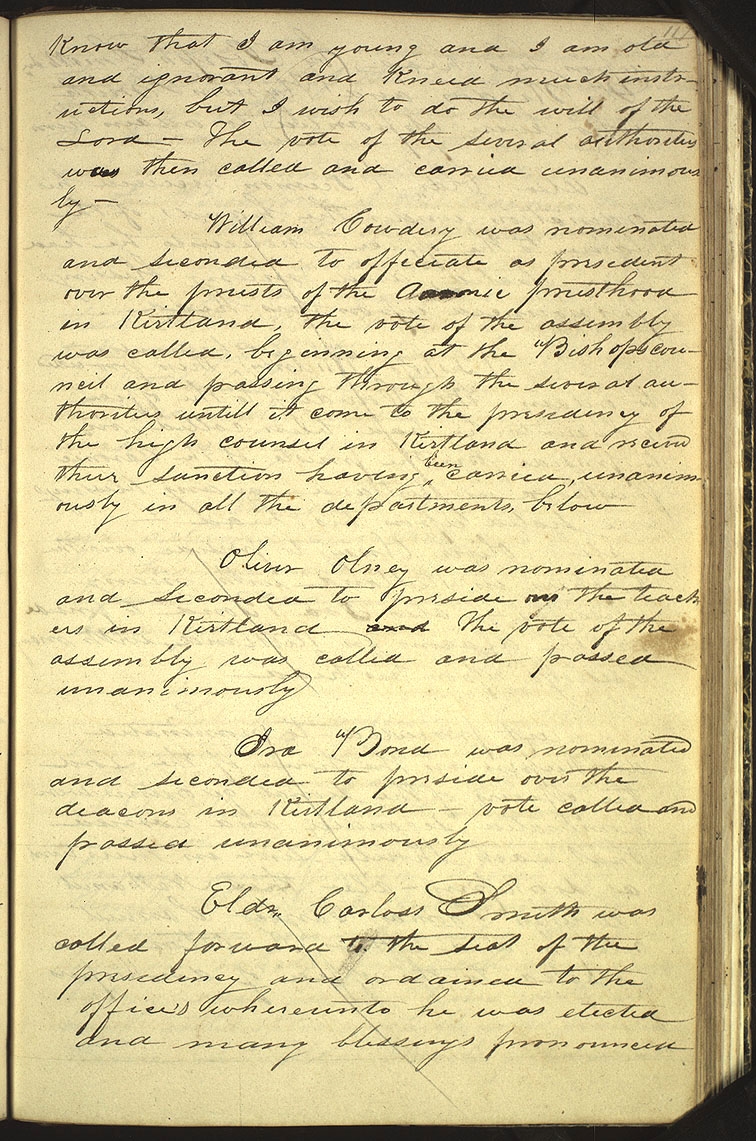 117
Know that I am young and I am old
and ignorant and kneed much instr-
uctions, but I wish to do the will of the
Lord — The vote of the several authorities
was then called and carried unanimous
ly —
William Cowdery was nominated
and seconded to officiate as president
over the priests of the Aaronic priesthood
in Kirtland, the vote of the assembly
was called, beginning at the Bishops cou-
ncil and passing through the several au-
thorities untill it come to the presidency of
the high counsel in Kirtland and receivd
their sanction having been carried, unanim
ously in all the departments, below
Oliver Olney was nominated
and seconded to preside over the teach
ers in Kirtland and The vote of the
assembly was called and passed
unanimously
Ira Bond was nominated
and seconded to preside over the
deacons in Kirtland — vote called and
passed unanimously
Eldr. Carloss Smith was
called forward to the seat of the
presidency and ordained to the
office's whereunto he was elected
and many blessings pronounced